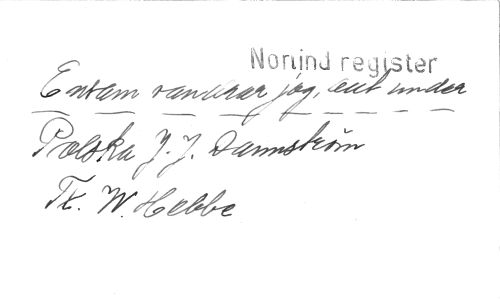 Norlind register
Ensam vandrar jag, allt under
Polska J. J. Dannström
Tx. W. Hebbe